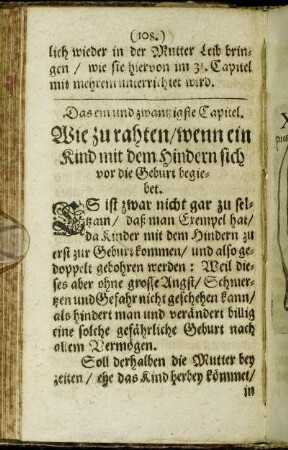 (108.)
lich wieder in der Mutter Leib brin-
gen / wie sie hiervon im 31. Capitel
mit mehrem unterrichtet wird.
Das ein und zwantzigste Capitel.
Wie zu rahten / wenn ein
Kind mit dem Hindern sich
vor die Geburt begie-
bet.
ES ist zwar nicht gar zu sel-
tzam / daß man Exempel hat /
da Kinder mit dem Hindern zu
erst zur Geburt kommen / und also ge-
doppelt gebohren werden : Weil die-
ses aber ohne grosse Angst / Schmer-
tzen und Gefahr nicht geschehen kann /
als hindert man und verändert billig
eine solche gefährliche Geburt nach
allem Vermögen.
Soll derhalben die Mutter bey
zeiten / ehe das Kind herbey kömmet /
in